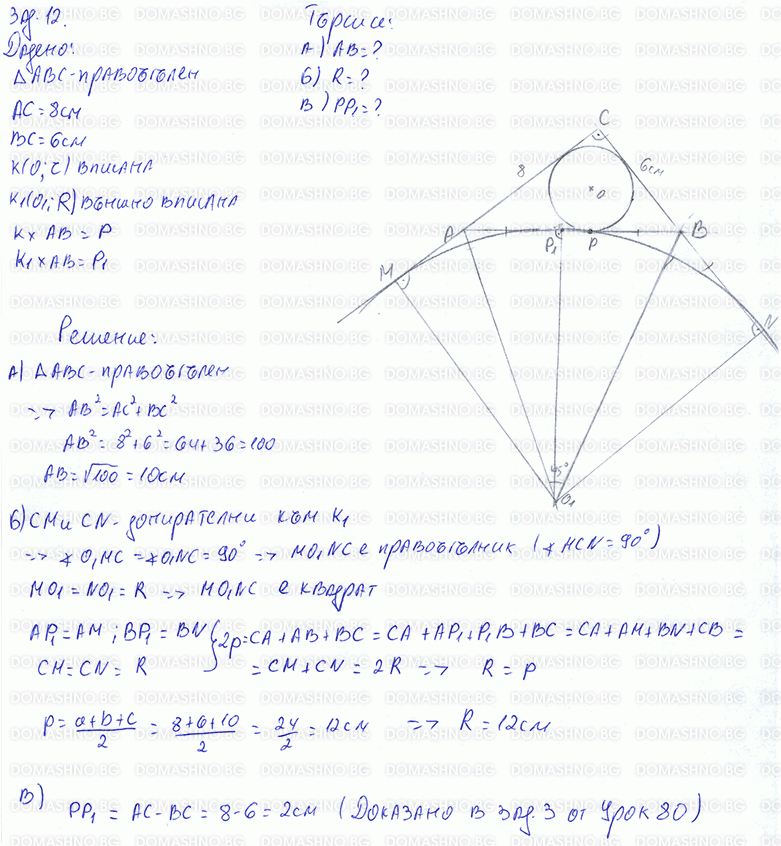 Зад. 12.
Дадено:
△ABC - правоъгълен
AC = 8см
BC = 6см
K(O; r) вписана
K₁(O₁; R) външно вписана
K × AB = P
K₁ × AB = P₁
Търси се:
А) AB = ?
б) R = ?
В) PP₁ = ?
C
8
6см
O
A
P₁
P
B
M
N
45°
O₁
Решение:
А) △ABC - правоъгълен
=> AB² = AC² + BC²
AB² = 8² + 6² = 64 + 36 = 100
AB = √100 = 10см
б) CM и CN - допирателни към K₁
=> ∢O₁MC = ∢O₁NC = 90° => MO₁NC е правоъгълник (∢MCN = 90°)
MO₁ = NO₁ = R => MO₁NC е квадрат
AP₁ = AM ; BP₁ = BN } 2p = CA + AB + BC = CA + AP₁ + P₁B + BC = CA + AM + BN + CB =
CM = CN = R = CM + CN = 2R => R = p
p = (a+b+c)/2 = (8+6+10)/2 = 24/2 = 12см => R = 12см
В) PP₁ = AC - BC = 8 - 6 = 2см (Доказано в зад. 3 от Урок 80)
DOMASHNO.BG